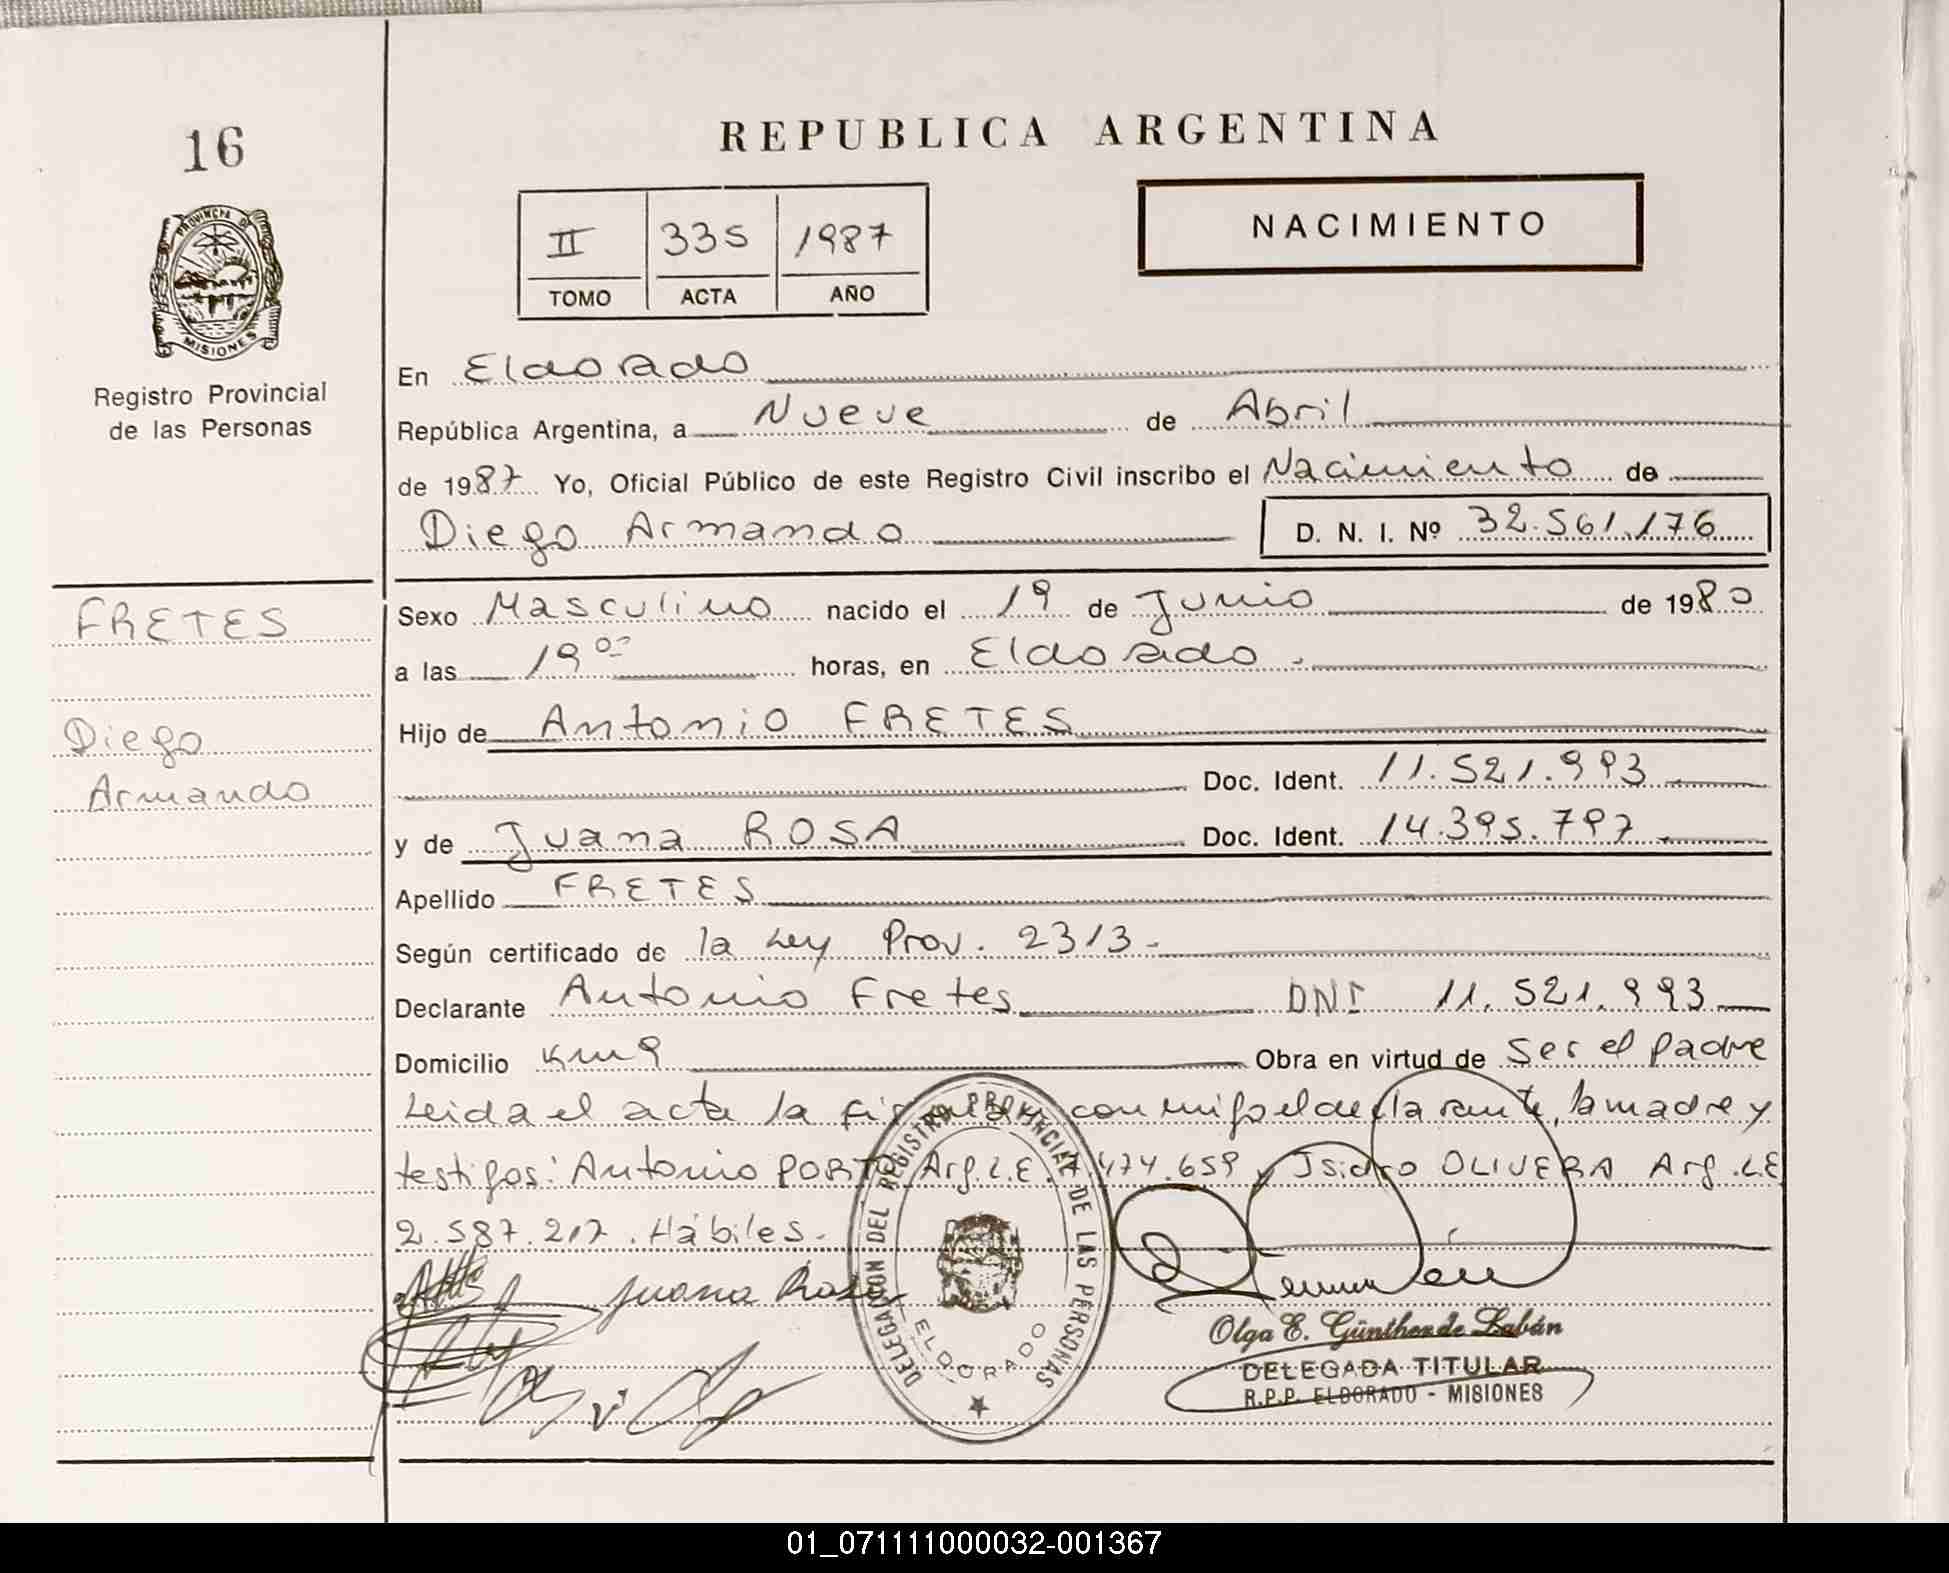 16
REPUBLICA ARGENTINA
NACIMIENTO
II 335 1987
TOMO ACTA AÑO
PROVINCIA DE
MISIONES
Registro Provincial
de las Personas
En Eldorado
República Argentina, a Nueve de Abril
de 1987 Yo, Oficial Público de este Registro Civil inscribo el Nacimiento de
Diego Armando D. N. I. Nº 32.561.176
FRETES
Diego
Armando
Sexo Masculino nacido el 19 de Junio de 1980
a las 19 00 horas, en Eldorado.
Hijo de Antonio FRETES
Doc. Ident. 11.521.993
y de Juana ROSA Doc. Ident. 14.395.797
Apellido FRETES
Según certificado de la Ley Prov. 2313-
Declarante Antonio Fretes DNI 11.521.993
Domicilio km 9 Obra en virtud de Ser el padre
Leida el acta la firman conmigo el declarante, la madre y
testigos: Antonio PORTO Arg. L.E. 7.474.659 y Isidro OLIVERA Arg. L.E
2.587.217. Hábiles.
Juana Rosa
DELEGACION DEL REGISTRO PROVINCIAL DE LAS PERSONAS
ELDORADO
Olga E. Günther de Labán
DELEGADA TITULAR
R.P.P. ELDORADO - MISIONES
01_071111000032-001367